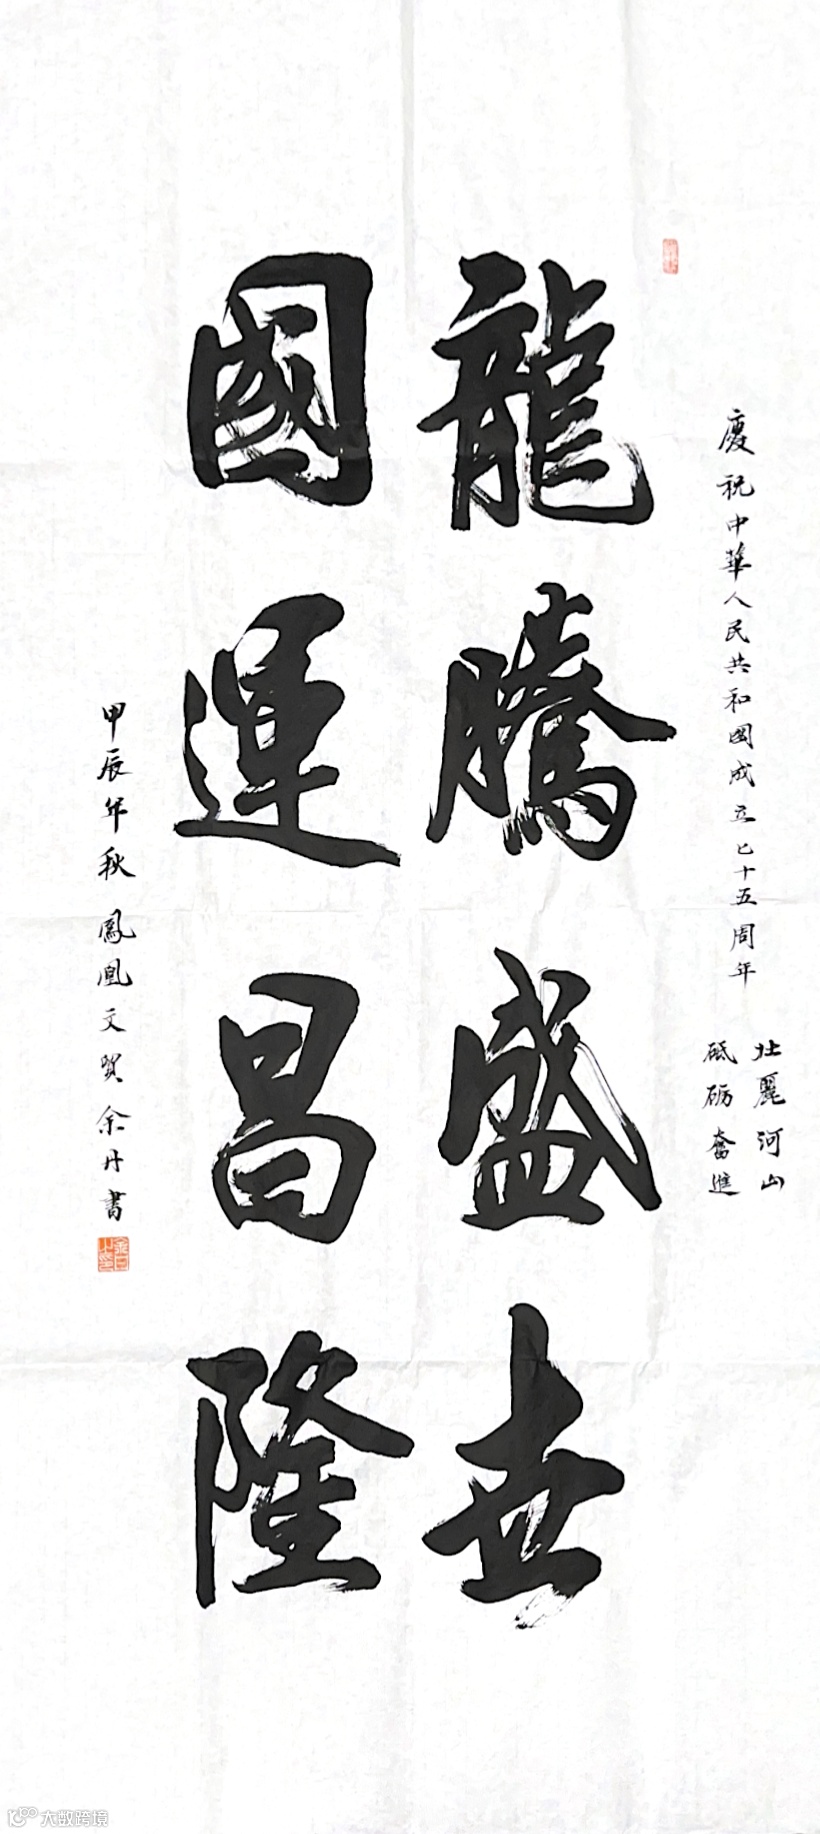 慶祝中華人民共和國成立七十五周年
壯麗河山
砥砺奮進
龍騰盛世
國運昌隆
甲辰年秋 鳳凰文質余丹書
大数跨境